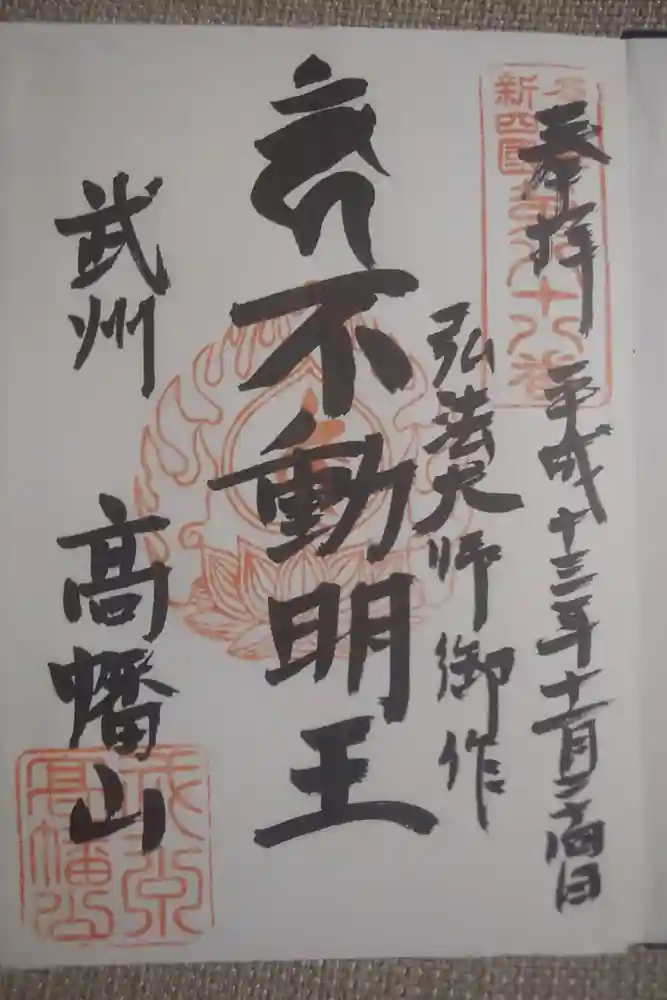 奉拝 平成十三年十一月二十四日
弘法大師御作
不動明王
武州 高幡山
新四国
八十八番
高幡山